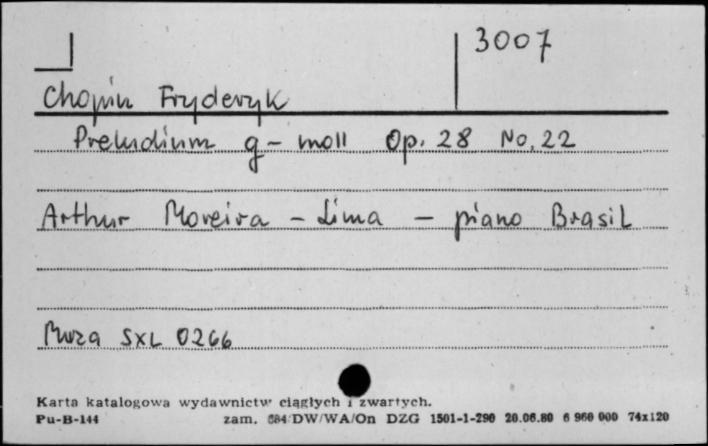 3007
Chopin Fryderyk
Preludium g-moll Op. 28 No. 22
Arthur Moreira - Lima - piano Brasil
Muza SXL 0266
Karta katalogowa wydawnictw ciągłych i zwartych.
Pu-B-144 zam. 684/DW/WA/On DZG 1501-1-290 20.06.80 6 960 000 74x120